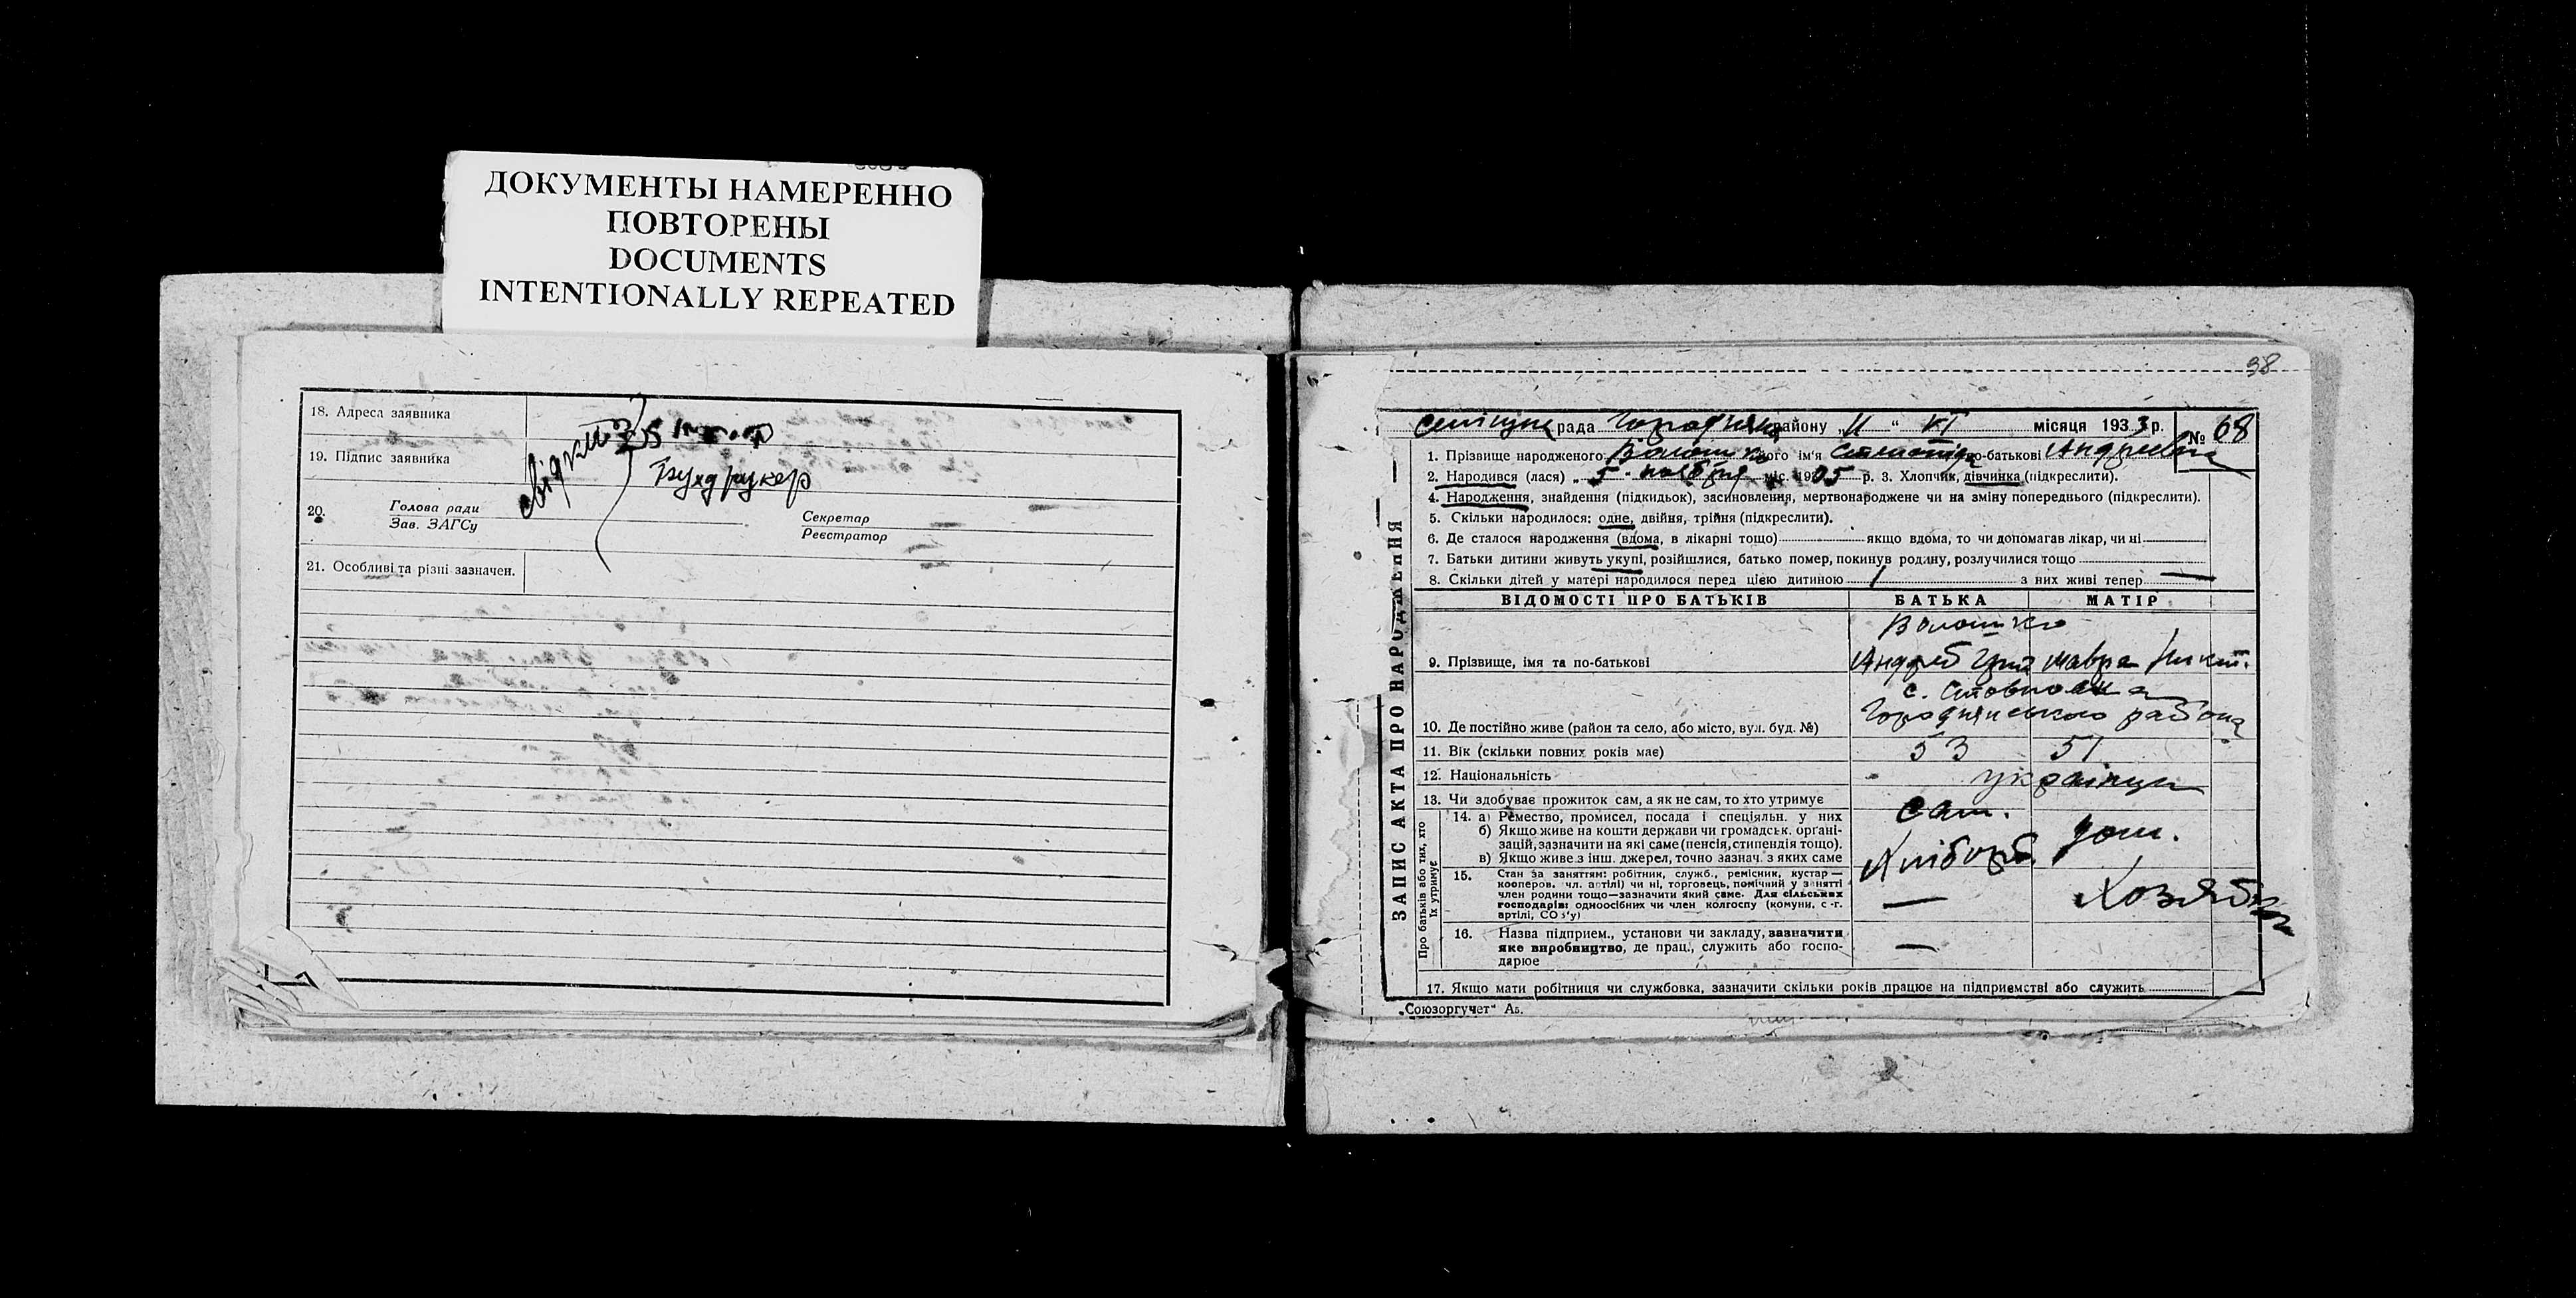 ДОКУМЕНТЫ НАМЕРЕННО
ПОВТОРЕНЫ
DOCUMENTS
INTENTIONALLY REPEATED
18. Адреса заявника
19. Підпис заявника
свідки
Бухдрукер
20. Голова ради
Зав. ЗАГСу
Секретар
Реєстратор
21. Особливі та різні зазначен.
98
ЗАПИС АКТА ПРО НАРОДЖЕННЯ
рада району „11“ XI місяця 1933 р. № 68
1. Прізвище народженого Волошко його ім'я по-батькові Андреевна
2. Народився (лася) „5- ноября міс. 1905 р. 3. Хлопчик, дівчинка (підкреслити).
4. Народження, знайдення (підкидьок), засиновлення, мертвонароджене чи на зміну попереднього (підкреслити).
5. Скільки народилося: одне, двійня, трійня (підкреслити).
6. Де сталося народження (вдома, в лікарні тощо) якщо вдома, то чи допомагав лікар, чи ні
7. Батьки дитини живуть укупі, розійшлися, батько помер, покинув родину, розлучилися тощо
8. Скільки дітей у матері народилося перед цією дитиною 1 з них живі тепер —
ВІДОМОСТІ ПРО БАТЬКІВ БАТЬКА МАТІР
Волошко
9. Прізвище, імя та по-батькові Андрей Мавра Никит.
с.
10. Де постійно живе (район та село, або місто, вул. буд. №) Городнянського района
11. Вік (скільки повних років має) 53 51
12. Національність українци
13. Чи здобуває прожиток сам, а як не сам, то хто утримує сам.
Про батьків або тих, хто їх утримує
14. а) Ремество, промисел, посада і спеціяльн. у них
б) Якщо живе на кошти держави чи громадськ. органі-
зацій, зазначити на які саме (пенсія, стипендія тощо).
в) Якщо живе з інш. джерел, точно зазнач. з яких саме
Хлібороб дом.
15. Стан за заняттям: робітник, служб., ремісник, кустар—
кооперов. чл. артілі) чи ні, торговець, помічний у занятті
член родини тощо—зазначити який саме. Для сільських
господарів: одноосібних чи член колгоспу (комуни, с.-г.
артілі, СОЗ'у)
— Хозяйка
16. Назва підприєм., установи чи закладу, зазначити
яке виробництво, де прац., служить або госпо-
дарює
—
17. Якщо мати робітниця чи службовка, зазначити скільки років працює на підприємстві або служить
„Союзоргучет“ Ав.